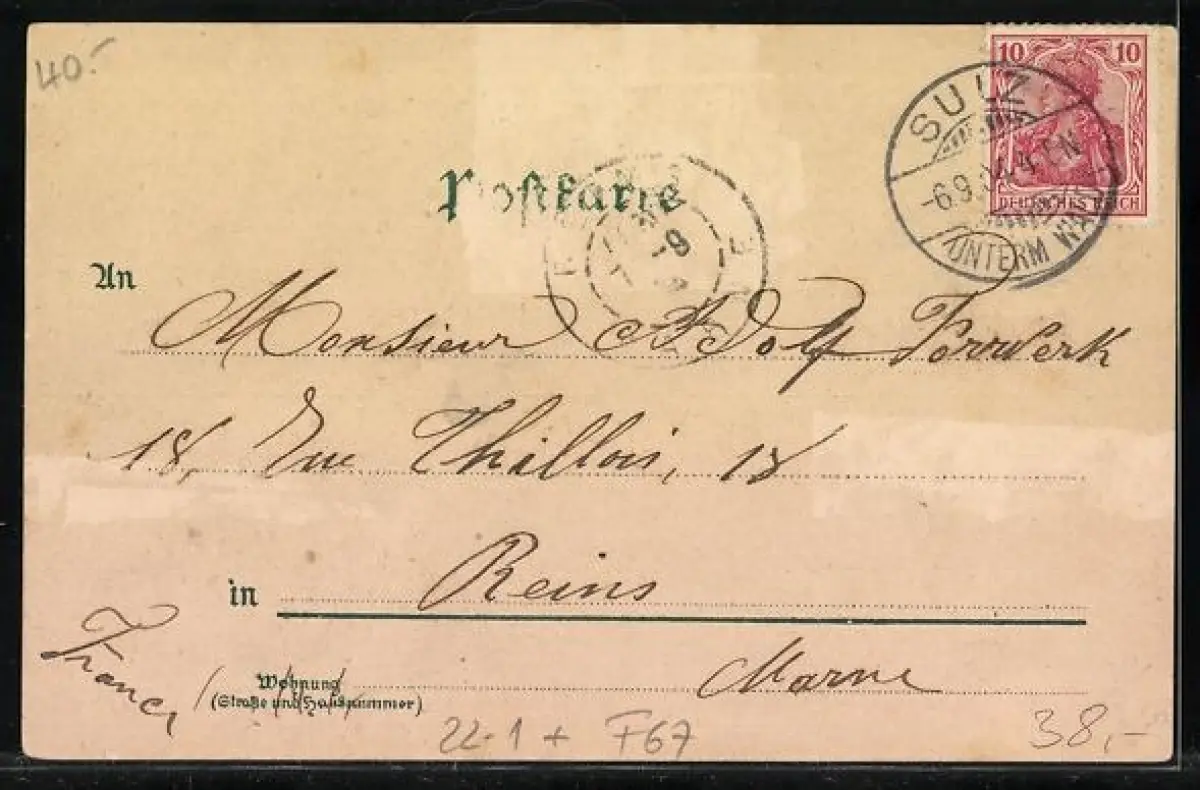 40.-
10 10
DEUTSCHES REICH
SULZ
-6.9.04.4-5N
UNTERM WALD
Postkarte
An
Monsieur Adolf Vorwerk
18, Rue Thillois, 18
in Reims
Marne
France
Wohnung
(Straße und Hausnummer)
22-1 + F67
38,-